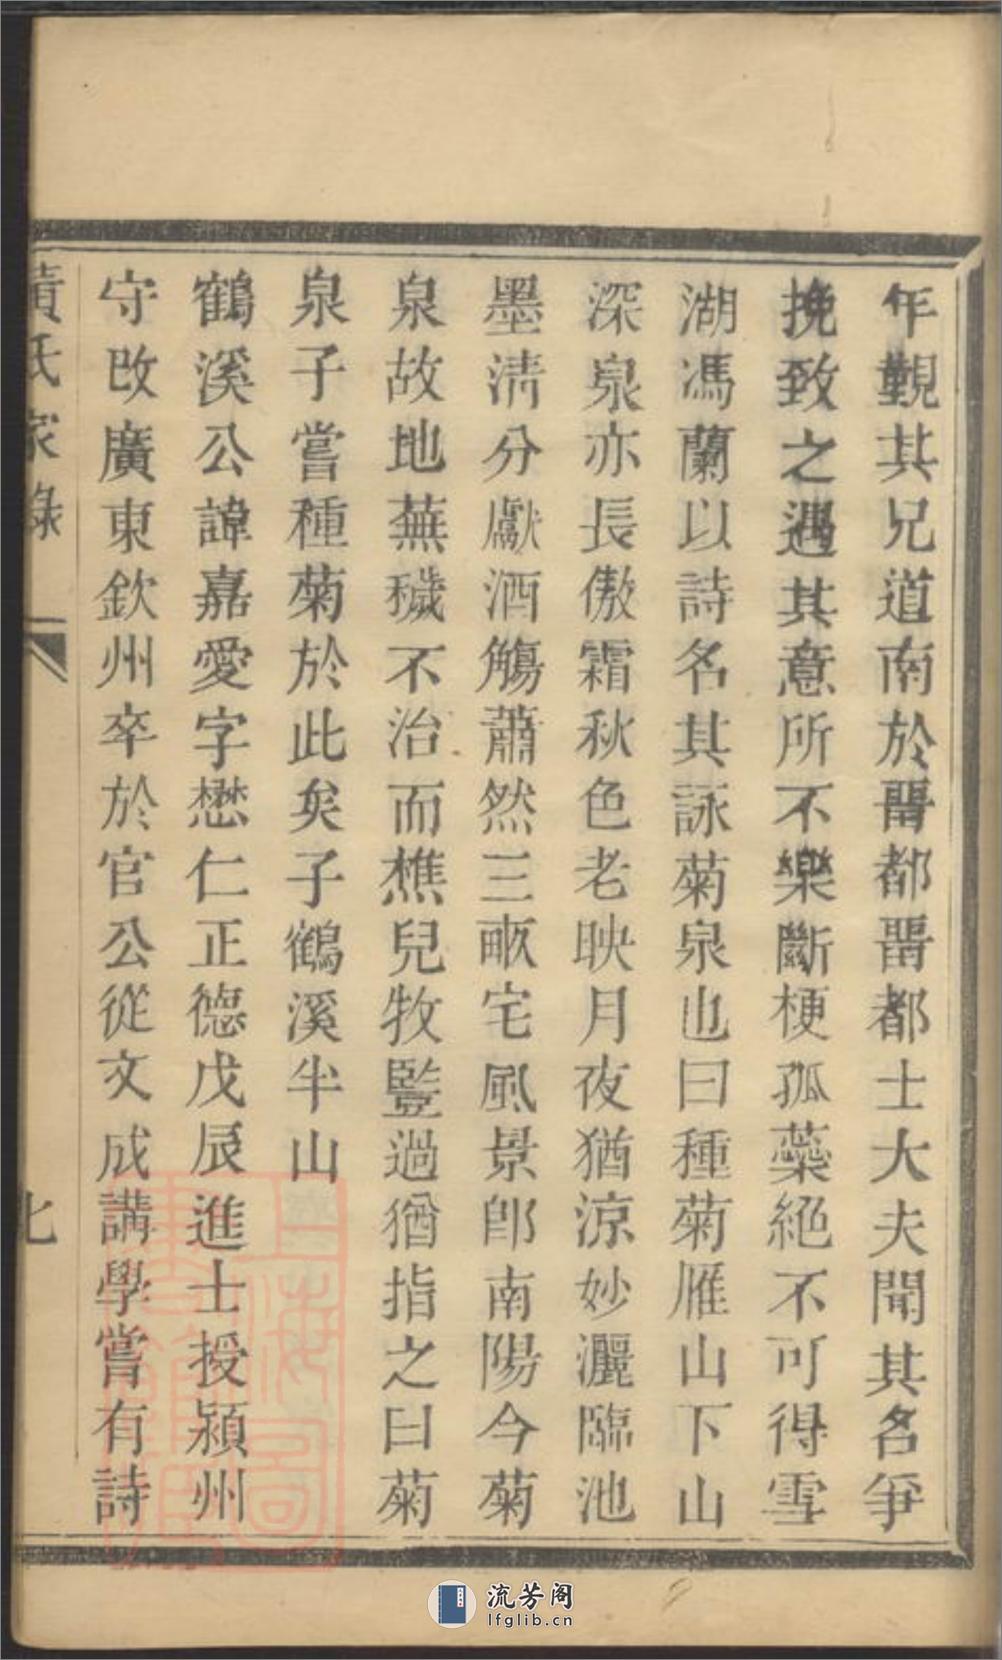 年覲其兄道南於畱都畱都士大夫聞其名爭
挽致之遇其意所不樂斷梗孤蘗絕不可得雪
湖馮蘭以詩名其詠菊泉也曰種菊雁山下山
深泉亦長傲霜秋色老映月夜猶涼妙灑臨池
墨清分獻酒觴蕭然三畝宅風景卽南陽今菊
泉故地蕪穢不治而樵兒牧豎過猶指之曰菊
泉子嘗種菊於此矣子鶴溪半山
鶴溪公諱嘉愛字懋仁正德戊辰進士授潁州
守改廣東欽州卒於官公從文成講學嘗有詩
黃氏家錄
七
流芳阁
lfglib.cn